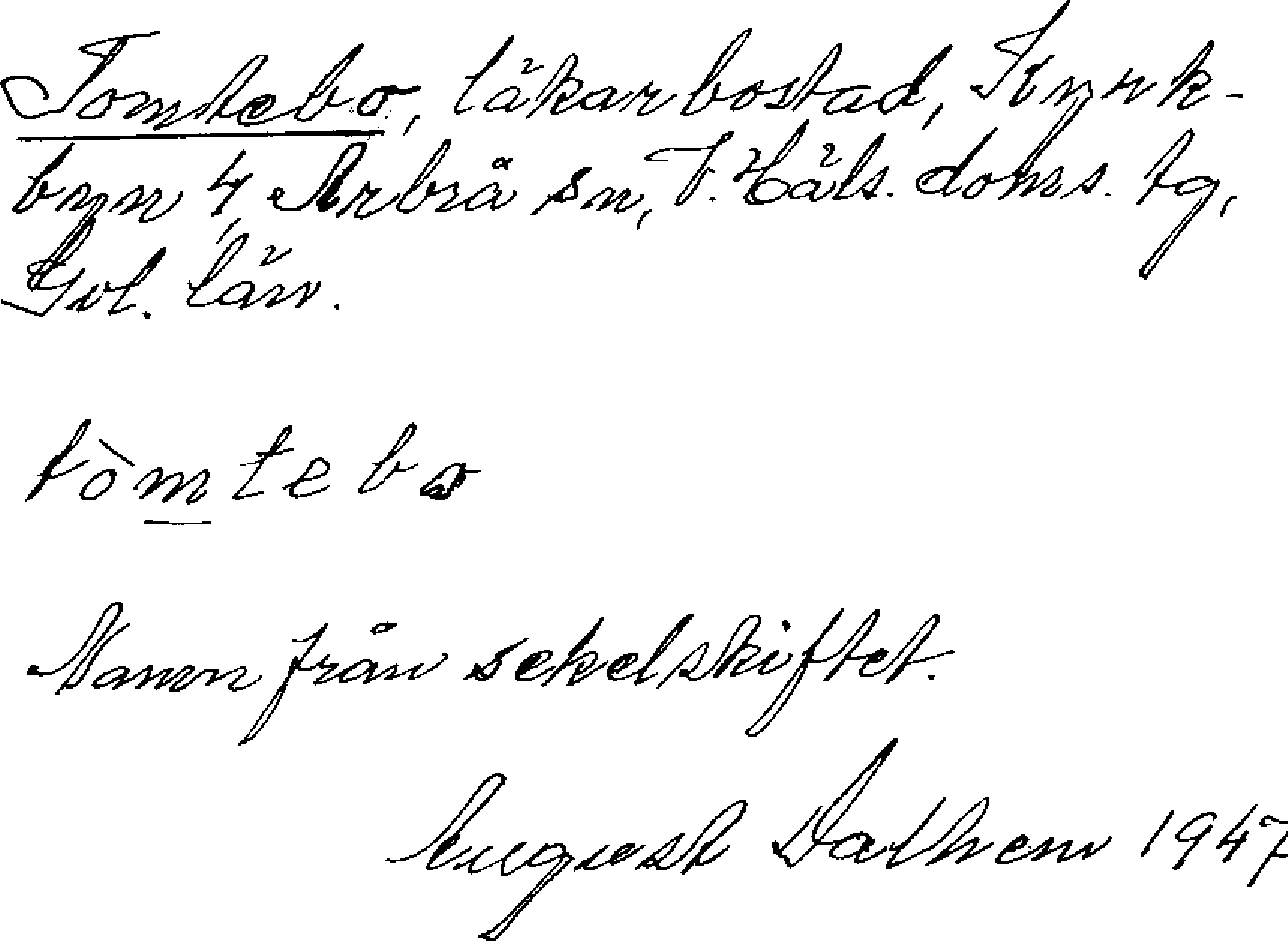 Tomtebo, läkarbostad, Kyrk-
byn 4, Arbrå sn, V. Häls. doms. tg,
Gvl. län.
tòmtebo
Namn från sekelskiftet.
August Dathem 1947